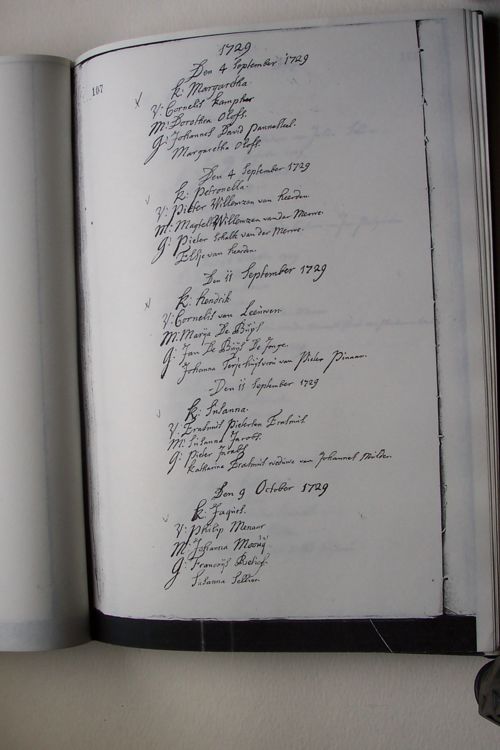 107
1729
Den 4 September 1729
K: Margaretha
V: Cornelis Kampher
M: Dorothea Olofs.
G: Johannes David
Margaretha Olofs.
Den 4 September 1729
K: Petronella.
V: Pieter Willemzen van heerden.
M: Magtelt Willemzen van der Merwe.
G: Pieter Schalk van der Merwe.
Elsje van heerden.
Den 11 September 1729
K: Hendrik
V: Cornelis van Leeuwen.
M: Marija De Buijs
G: Jan De Buijs De Jonge.
Johanna huijsvrou van Pieter Pinaar.
Den 11 September 1729
K: Susanna.
V: Erasmus Pieterzen Erasmus.
M: Susanna Jacobs.
G: Pieter Jacobs
Katharina Erasmus weduwe van Johannes
Den 9 October 1729
K: Jaques.
V: Philip Menaar
M: Johanna Mooij
G: Francois
Susanna